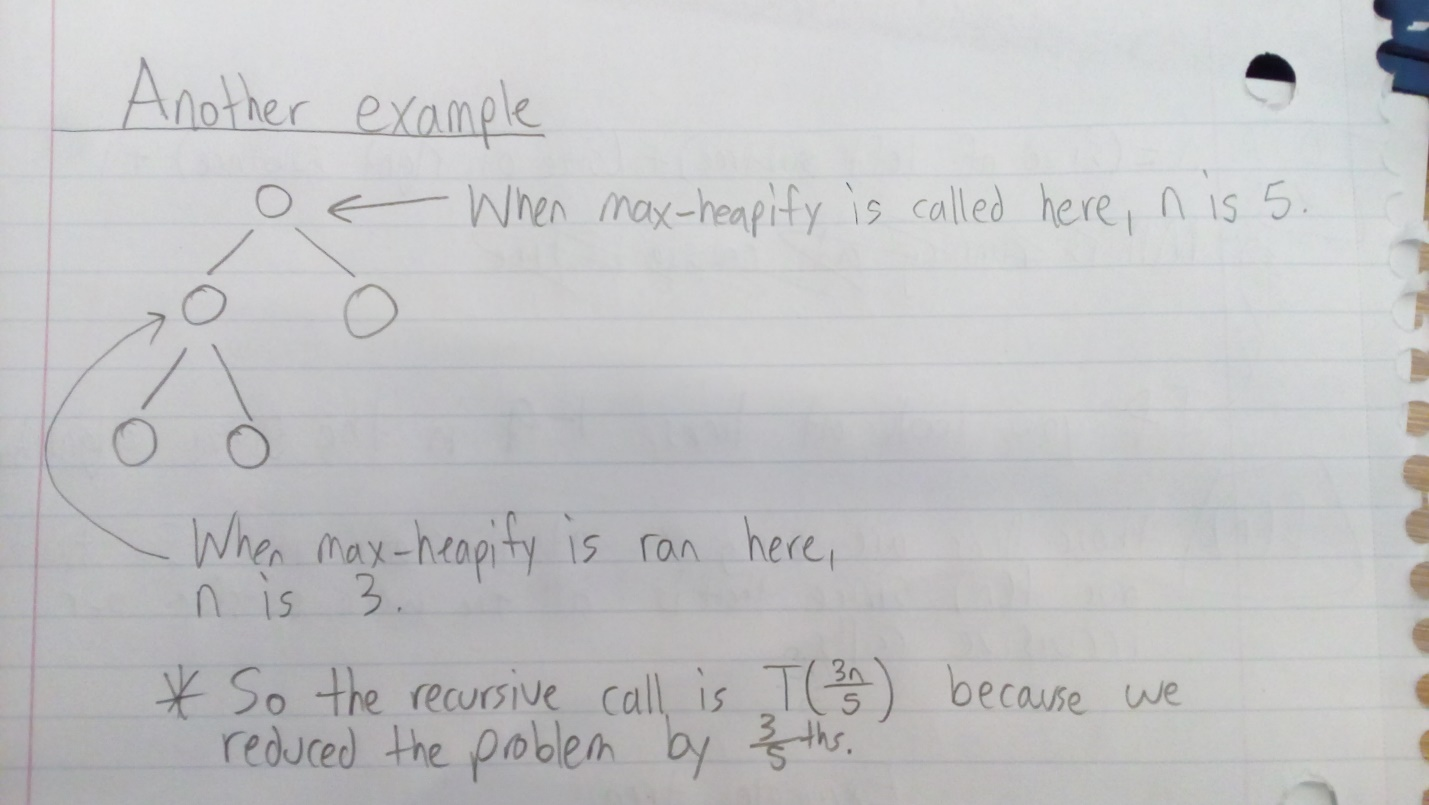 Another example
When max-heapify is called here, n is 5.
When max-heapify is ran here,
n is 3.
* So the recursive call is T(3n/5) because we
reduced the problem by 3/5 ths.